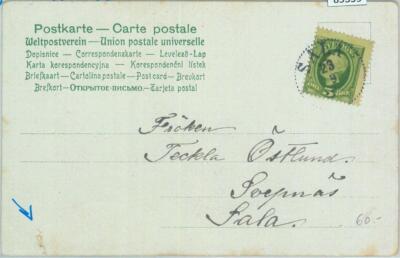 Postkarte — Carte postale
Weltpostverein — Union postale universelle
Dopisnice — Correspondenzkarte — Levelező-Lap
Karta korespondencyjna — Korespondenční lístek
Briefkaart — Cartolina postale — Post card — Brevkort
Brefkort — Открытое письмо — Tarjeta postal
Fröken
Teckla Östlund.
Sala.
60.-